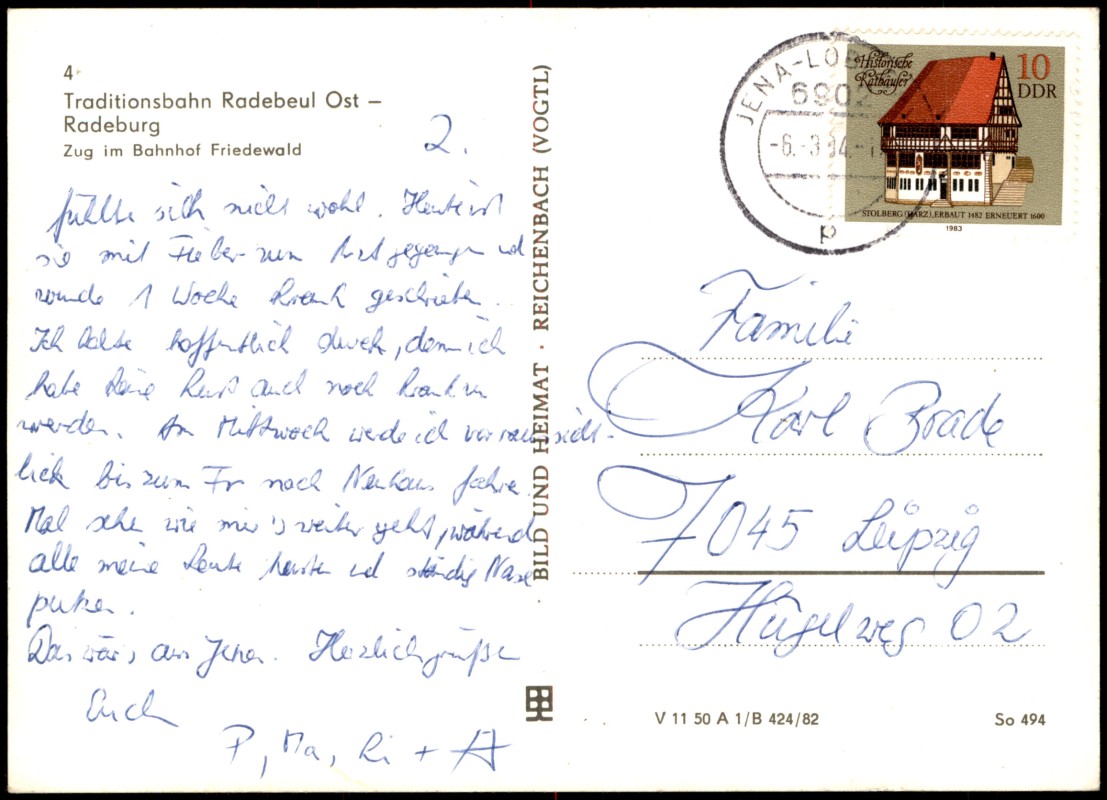 4
Traditionsbahn Radebeul Ost –
Radeburg
Zug im Bahnhof Friedewald
2.
fühlte sich nicht wohl. Heute ist
sie mit Fieber zum Arzt gegangen und
wurde 1 Woche krank geschrieben.
Ich halte hoffentlich durch, denn ich
habe keine Lust auch noch krank zu
werden. Am Mittwoch werde ich voraussicht-
lich bis zum Fr nach Neuhaus fahren.
Mal sehen wie mir's weiter geht, während
alle meine Leute husten und ständig Nase
putzen.
Das wär's aus Jena. Herzlich grüßen
Euch
P, Ma, Ri + A
BILD UND HEIMAT · REICHENBACH (VOGTL)
JENA-LOB
6902
-6.-3.84.-
p
Historische
Rathäuser
10
DDR
STOLBERG (HARZ), ERBAUT 1482 ERNEUERT 1600
1983
Familie
Karl Brade
7045 Leipzig
Hügelweg 02
V 11 50 A 1/B 424/82
So 494